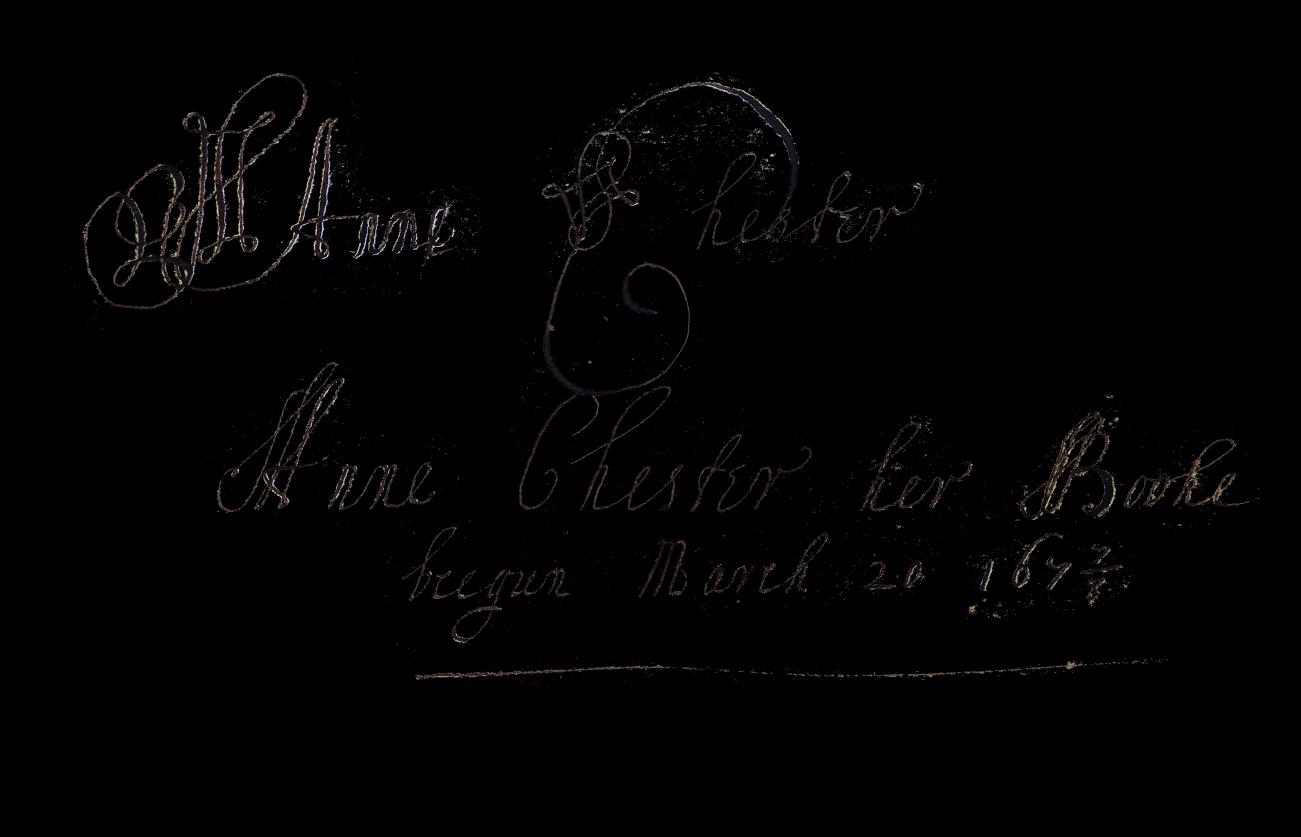 Anne Chester
Anne Chester her Booke
beegun March 20 167 7/8